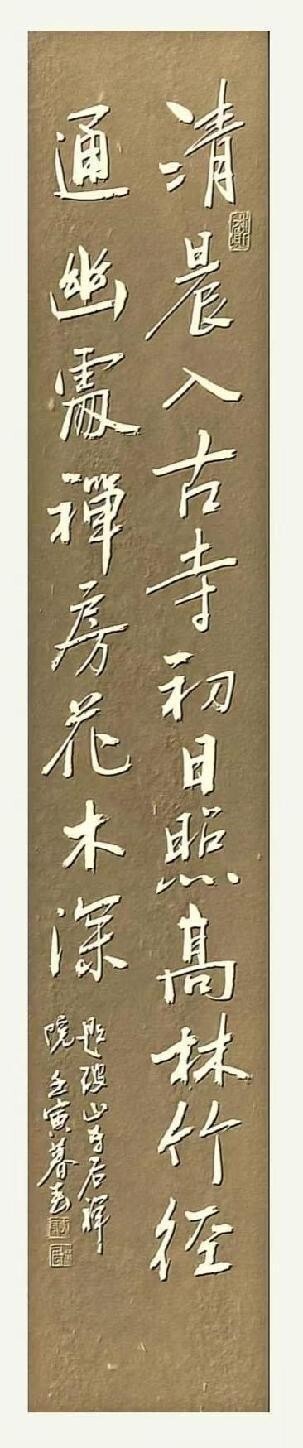 清晨入古寺初日照高林竹径
通幽處禪房花木深
題破山寺后禪
院壬寅暮春